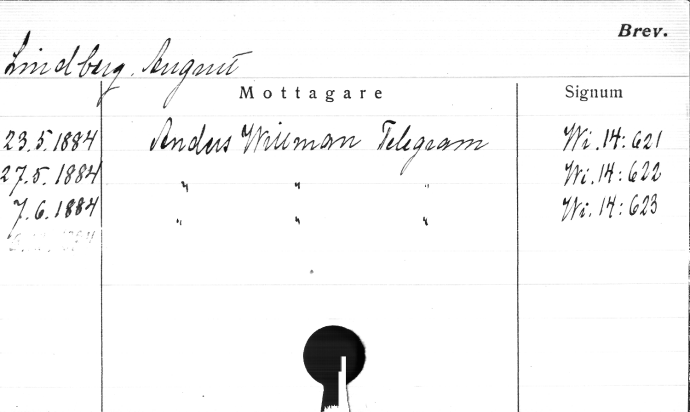 Brev.
Lindberg, August
Mottagare Signum
23.5.1884 Anders Willman Telegram Wi.14:621
27.5.1884 " " " Wi.14:622
7.6.1884 " " " Wi.14:623